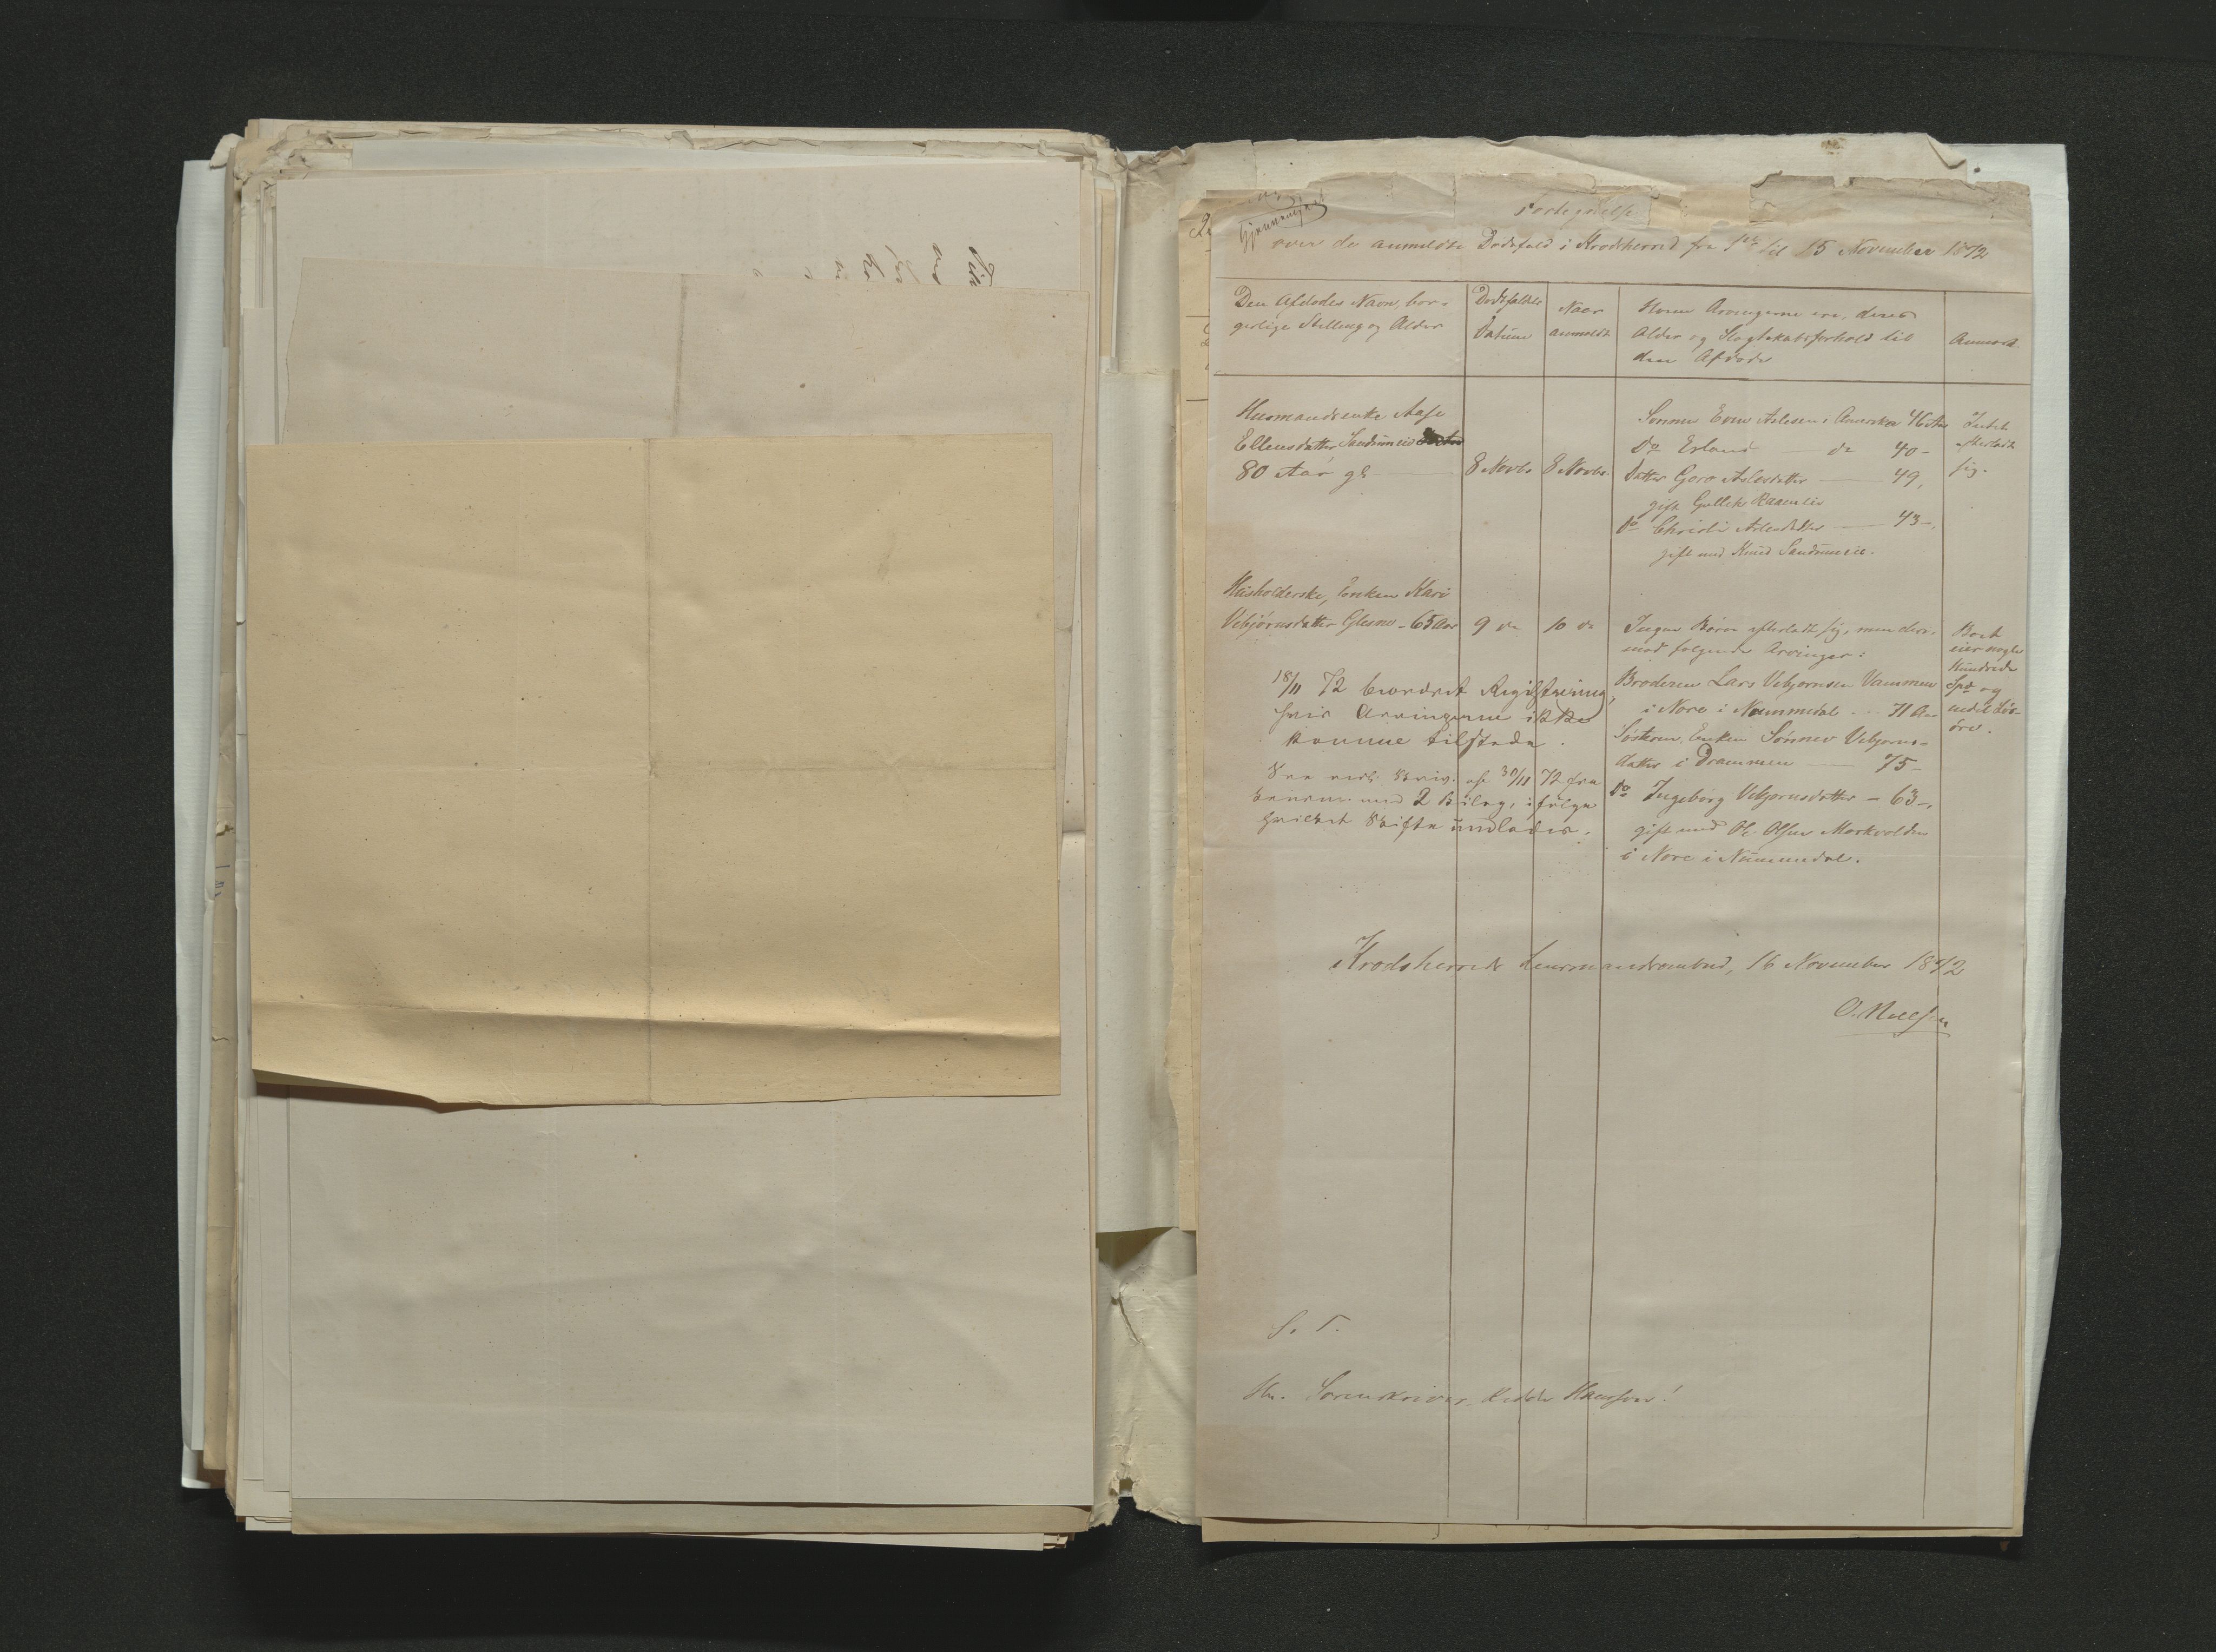 Gjennemgaaet
Fortegnelse
over de anmeldte Dødsfald i Krødsherred fra 1ste til 15 November 1872
Den Afdødes Navn, bor-
gerlige Stilling og Alder
Dødsfaldets
Datum
Naar
anmeldt
Hvem Arvingerne ere, deres
Alder og Slægtskabsforhold til
den Afdøde
Anmærk.
Huusmandsenke Aase
Ellensdatter Sandumeie
80 Aar gl
8 Novbr
8 Novbr.
Sønnen Even Aslesen i Amerika 46 Aar
Do Erland — do 40 -
Datter Goro Aslesdatter — 49,
gift Gullik Raaneeie
Do Christi Aslesdatter — 43 -,
gift med Knud Sandumeie.
Intet
efterladt
sig.
Huusholderske, Enken Kari
Vebjørnsdatter Glesne - 65 Aar
9 do
10 do
Ingen Børn efterladt sig, men der-
imod følgende Arvinger:
Broderen Lars Vebjørnsen Vammen
i Nore i Nummedal - - 71 Aar
Søsteren, Enken Sønnev Vebjørns-
datter i Drammen — 75 -
Do Ingeborg Vebjørnsdatter - 63 -,
gift med Ole Olsen Morkvolden
i Nore i Nummedal.
Boet
eier nogle
Hundrede
Spd og
endel Løs-
øre.
18/11 72 beordret Registrering,
hvis Arvingerne ikke
komme tilstede.
See Skriv. af 30/11 72 fra
med 2 Bilag, ifølge
hvilket Skifte undlades.
Krødsherreds Lensmandsombud, 16 November 1872
O. Nielsen
S. T.
Hr. Sorenskriver, Ridder Hansson!